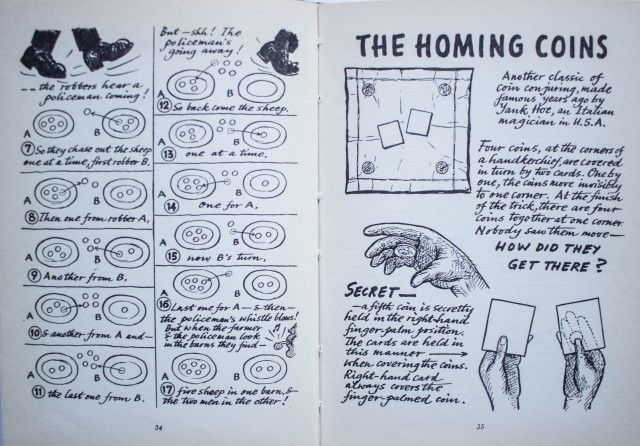 --- the robbers hear a
policeman coming!
A B
7 So they chase out the sheep
one at a time, first robber B.
A B
8 Then one from robber A,
A B
9 Another from B.
A B
10 & another from A and—
A B
11 the last one from B.
But — shh! The
policeman's
going away!
A B
12 So back come the sheep.
A B
13 one at a time.
A B
14 One for A.
A B
15 now B's turn.
A B
16 Last one for A — & then —
the policeman's whistle blows!
But when the farmer
& the policeman look
in the barns they find —
A B
17 five sheep in one barn, &
the two men in the other!
34
THE HOMING COINS
Another classic of
coin conjuring, made
famous years ago by
Yank Hoe, an Italian
magician in U.S.A.
Four coins, at the corners of
a handkerchief, are covered
in turn by two cards. One by
one, the coins move invisibly
to one corner. At the finish
of the trick, there are four
coins together at one corner.
Nobody saw them move —
HOW DID THEY
GET THERE?
SECRET —
— a fifth coin is secretly
held in the right-hand
finger-palm position.
The cards are held in
this manner
when covering the coins.
Right-hand card
always covers the
finger-palmed coin.
35